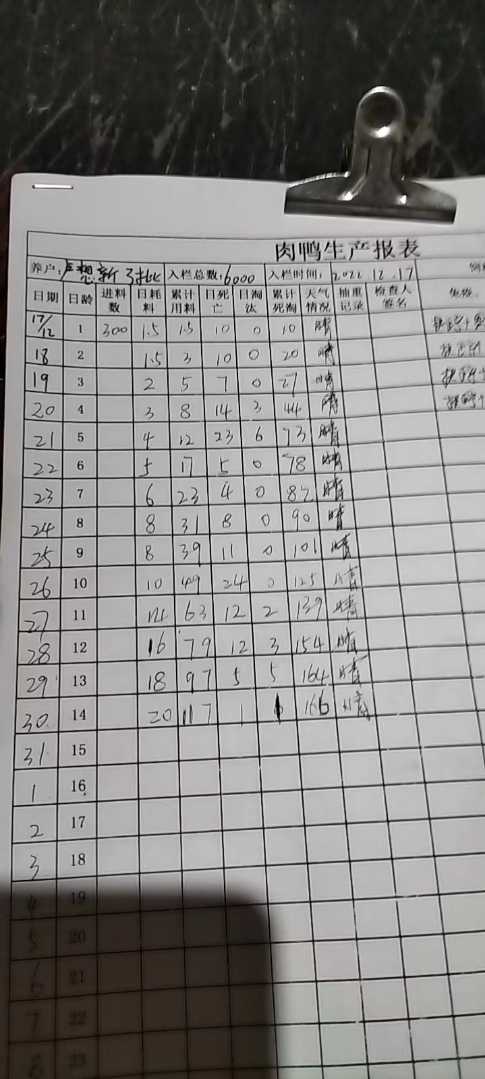 肉鸭生产报表
养户: 卢想新 3批 入栏总数: 6000 入栏时间: 2022 12.17
日期 日龄 进料数 日耗料 累计用料 日死亡 日淘汰 累计死淘 天气情况 抽重记录 检查人签名 免疫
17/12 1 300 1.5 1.5 10 0 10 晴
18 2 1.5 3 10 0 20 晴
19 3 2 5 7 0 27 晴
20 4 3 8 14 3 44 晴
21 5 4 12 23 6 73 晴
22 6 5 17 5 0 78 晴
23 7 6 23 4 0 82 晴
24 8 8 31 8 0 90 晴
25 9 8 39 11 0 101 晴
26 10 10 49 24 0 125 晴
27 11 14 63 12 2 139 晴
28 12 16 79 12 3 154 晴
29 13 18 97 5 5 164 晴
30 14 20 117 1 1 166 晴
31 15
1 16
2 17
3 18
4 19
5 20
6 21
7 22
8 23